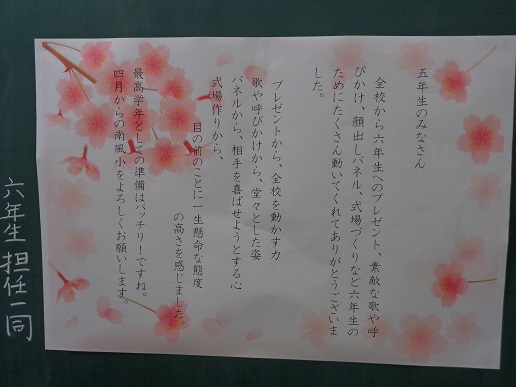 五年生のみなさん
全校から六年生へのプレゼント、素敵な歌や呼
びかけ、顔出しパネル、式場づくりなど六年生の
ためにたくさん動いてくれてありがとうございま
した。
プレゼントから、全校を動かす力
歌や呼びかけから、堂々とした姿
パネルから、相手を喜ばせようとする心
式場作りから、
目の前のことに一生懸命な態度
の高さを感じました。
最高学年としての準備はバッチリーですね。
四月からの南風小をよろしくお願いします。
六年生 担任一同